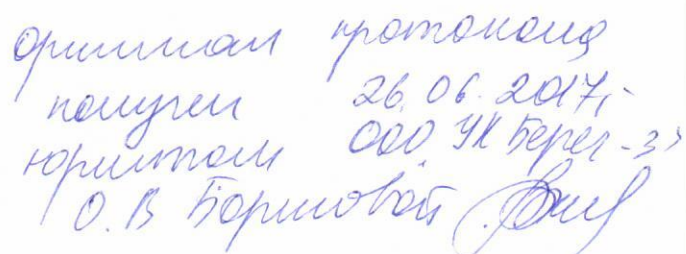 оригинал протокола
получен 26.06.2017г
юристом ООО УК Берег-3"
О.В Борисовой